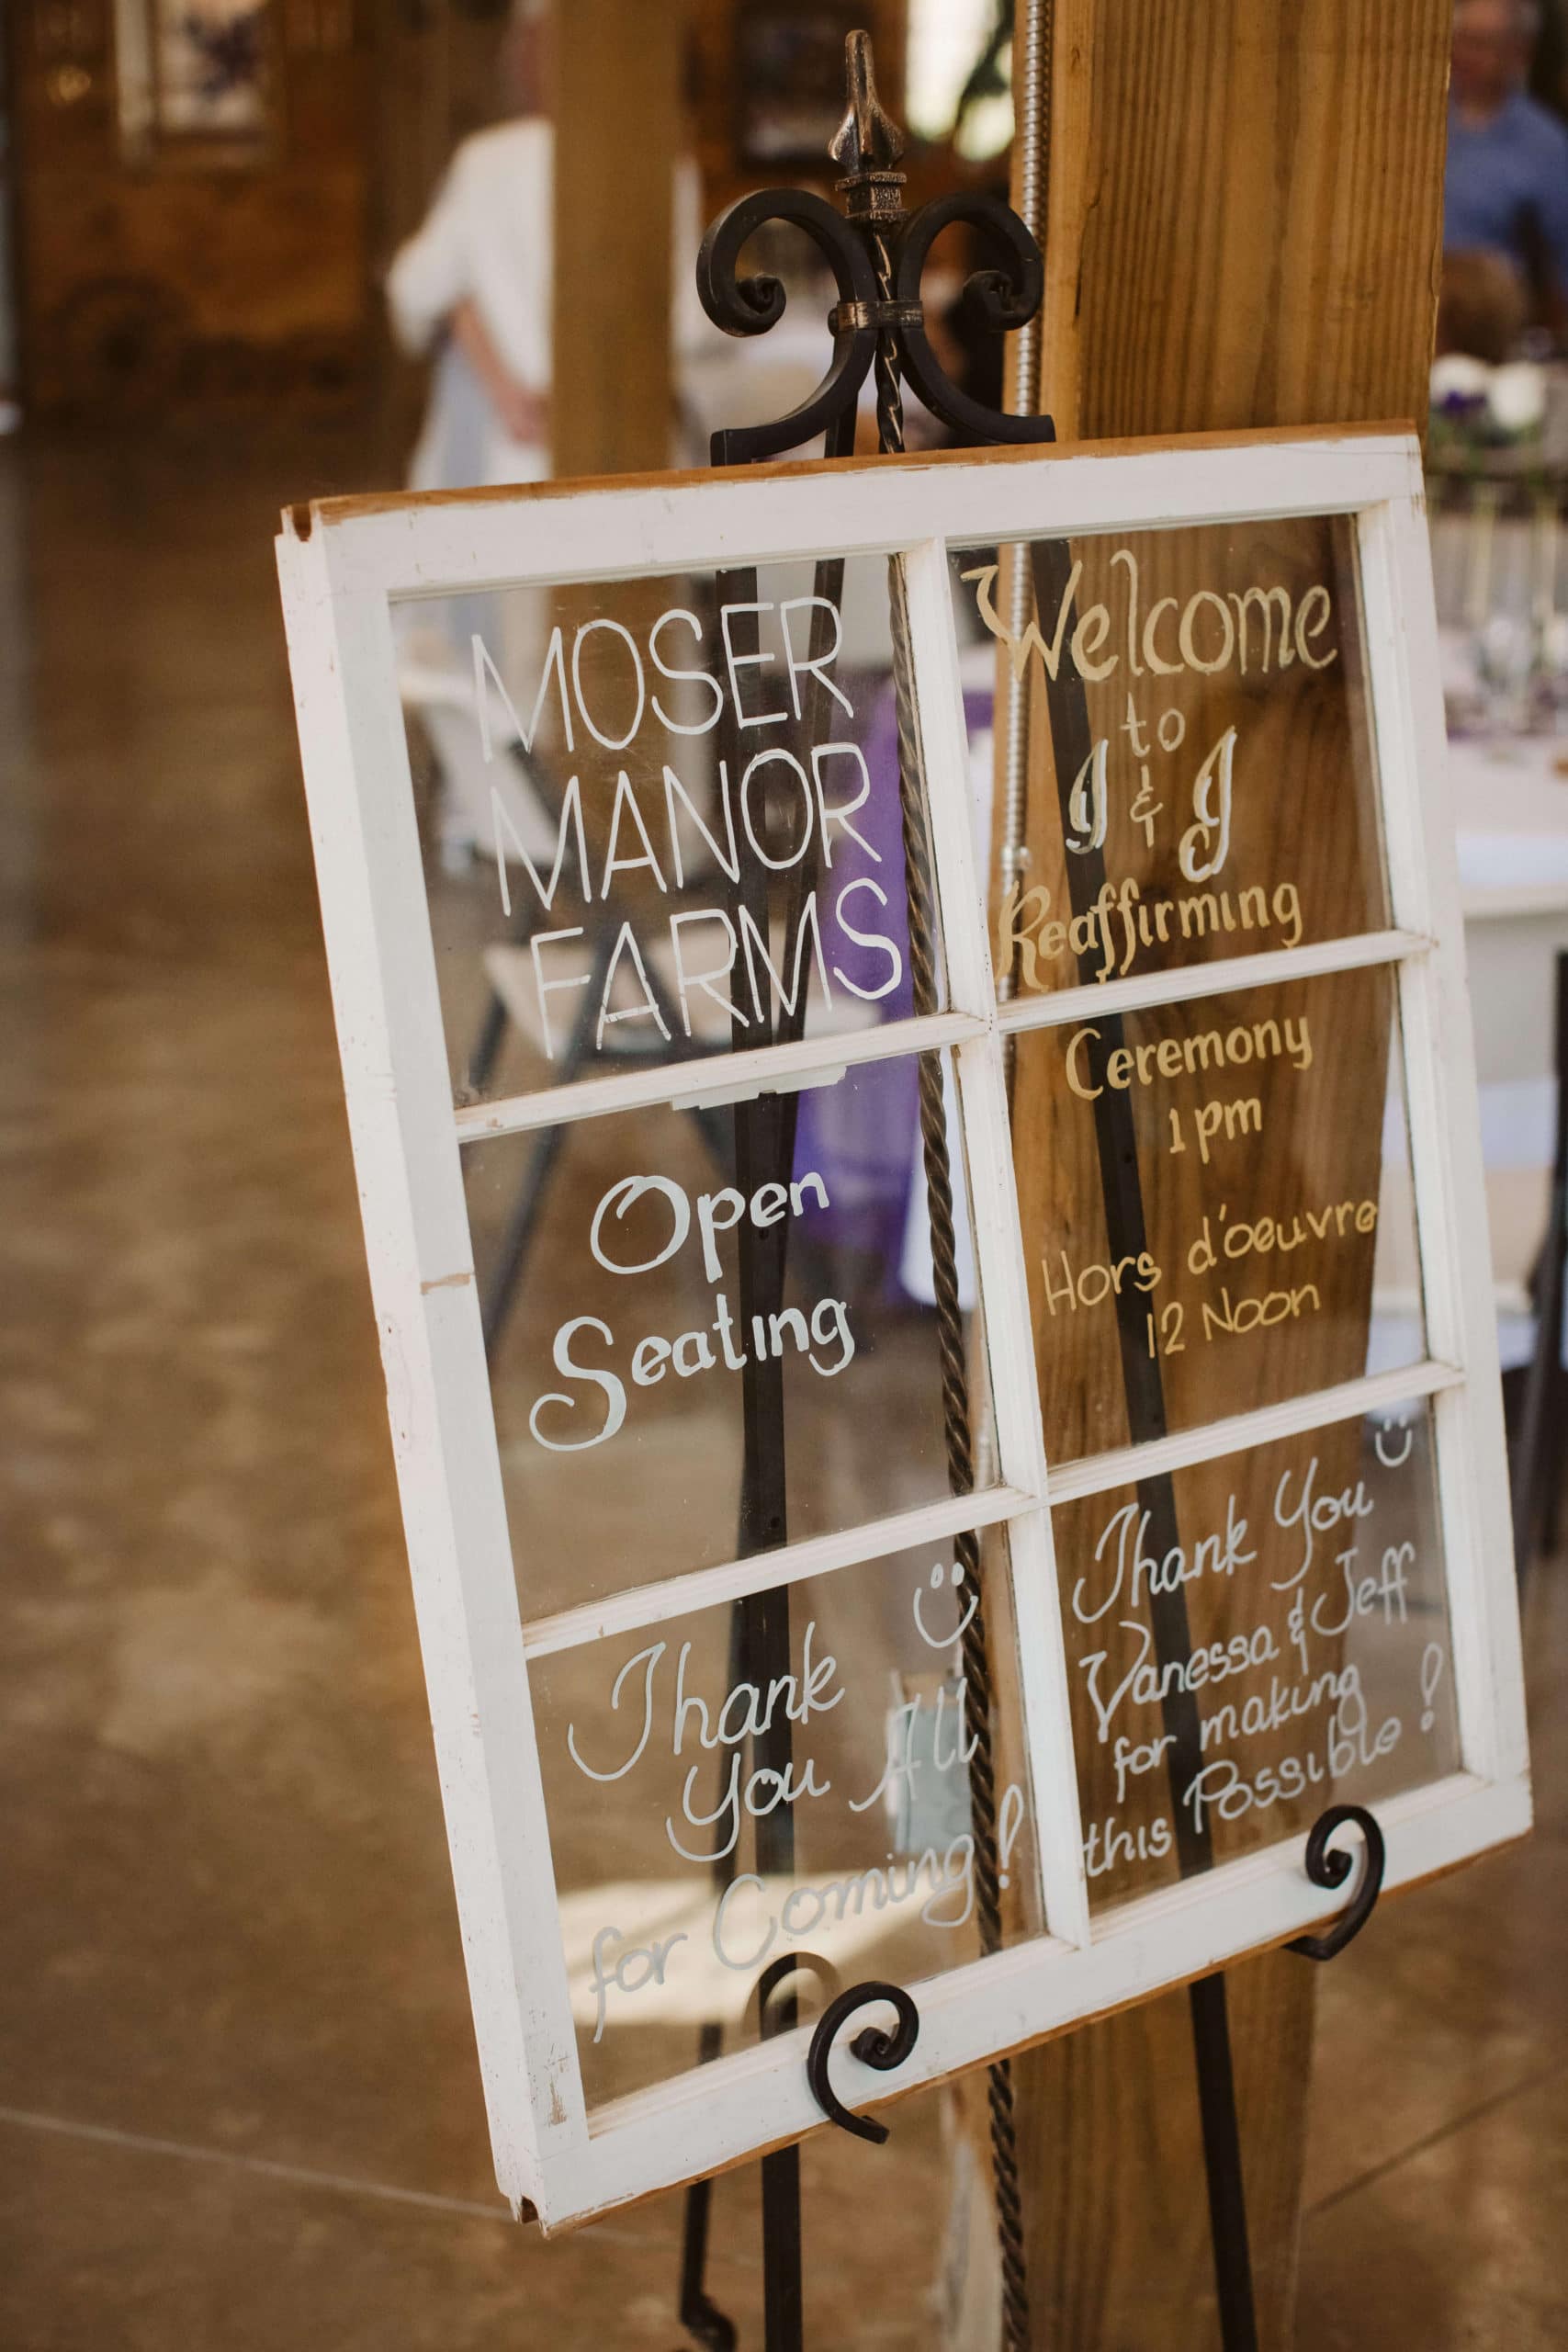 MOSER
MANOR
FARMS
Welcome
to
J & J
Reaffirming
Open
Seating
Ceremony
1 pm
Hors d'oeuvre
12 Noon
Thank
You All
for Coming!
Thank You
Vanessa & Jeff
for making
this Possible!